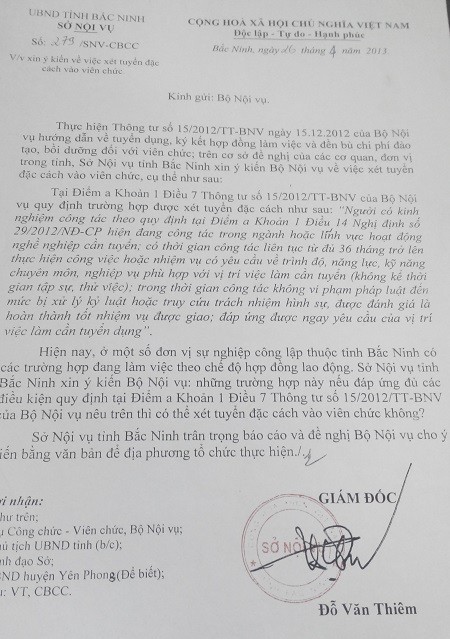 UBND TỈNH BẮC NINH
SỞ NỘI VỤ
CỘNG HOÀ XÃ HỘI CHỦ NGHĨA VIỆT NAM
Độc lập - Tự do - Hạnh phúc
Số: 279 /SNV-CBCC
Bắc Ninh, ngày 26 tháng 4 năm 2013
V/v xin ý kiến về việc xét tuyển đặc
cách vào viên chức.
Kính gửi: Bộ Nội vụ.
Thực hiện Thông tư số 15/2012/TT-BNV ngày 15.12.2012 của Bộ Nội
vụ hướng dẫn về tuyển dụng, ký kết hợp đồng làm việc và đền bù chi phí đào
tạo, bồi dưỡng đối với viên chức; trên cơ sở đề nghị của các cơ quan, đơn vị
trong tỉnh, Sở Nội vụ tỉnh Bắc Ninh xin ý kiến của Bộ Nội vụ về việc xét tuyển
đặc cách vào viên chức, cụ thể như sau:
Tại Điểm a Khoản 1 Điều 7 Thông tư số 15/2012/TT-BNV của Bộ Nội
vụ quy định trường hợp được xét tuyển đặc cách như sau: "Người có kinh
nghiệm công tác theo quy định tại Điểm a Khoản 1 Điều 14 Nghị định số
29/2012/NĐ-CP hiện đang công tác trong ngành hoặc lĩnh vực hoạt động
nghề nghiệp cần tuyển; có thời gian công tác liên tục từ đủ 36 tháng trở lên
thực hiện công việc hoặc nhiệm vụ có yêu cầu về trình độ, năng lực, kỹ năng
chuyên môn, nghiệp vụ phù hợp với vị trí việc làm cần tuyển (không kể thời
gian tập sự, thử việc); trong thời gian công tác không vi phạm pháp luật đến
mức bị xử lý kỷ luật hoặc truy cứu trách nhiệm hình sự, được đánh giá là
hoàn thành tốt nhiệm vụ được giao; đáp ứng được ngay yêu cầu của vị trí
việc làm cần tuyển dụng".
Hiện nay, ở một số đơn vị sự nghiệp công lập thuộc tỉnh Bắc Ninh có
các trường hợp đang làm việc theo chế độ hợp đồng lao động. Sở Nội vụ tỉnh
Bắc Ninh xin ý kiến Bộ Nội vụ: những trường hợp này nếu đáp ứng đủ các
điều kiện quy định tại Điểm a Khoản 1 Điều 7 Thông tư số 15/2012/TT-BNV
của Bộ Nội vụ nêu trên thì có thể xét tuyển đặc cách vào viên chức không?
Sở Nội vụ tỉnh Bắc Ninh trân trọng báo cáo và đề nghị Bộ Nội vụ cho ý
iến bằng văn bản để địa phương tổ chức thực hiện./.
ơi nhận:
hư trên;
ụ Công chức - Viên chức, Bộ Nội vụ;
hủ tịch UBND tỉnh (b/c);
nh đạo Sở;
BND huyện Yên Phong(Để biết);
u: VT, CBCC.
GIÁM ĐỐC
SỞ NỘI
Đỗ Văn Thiêm